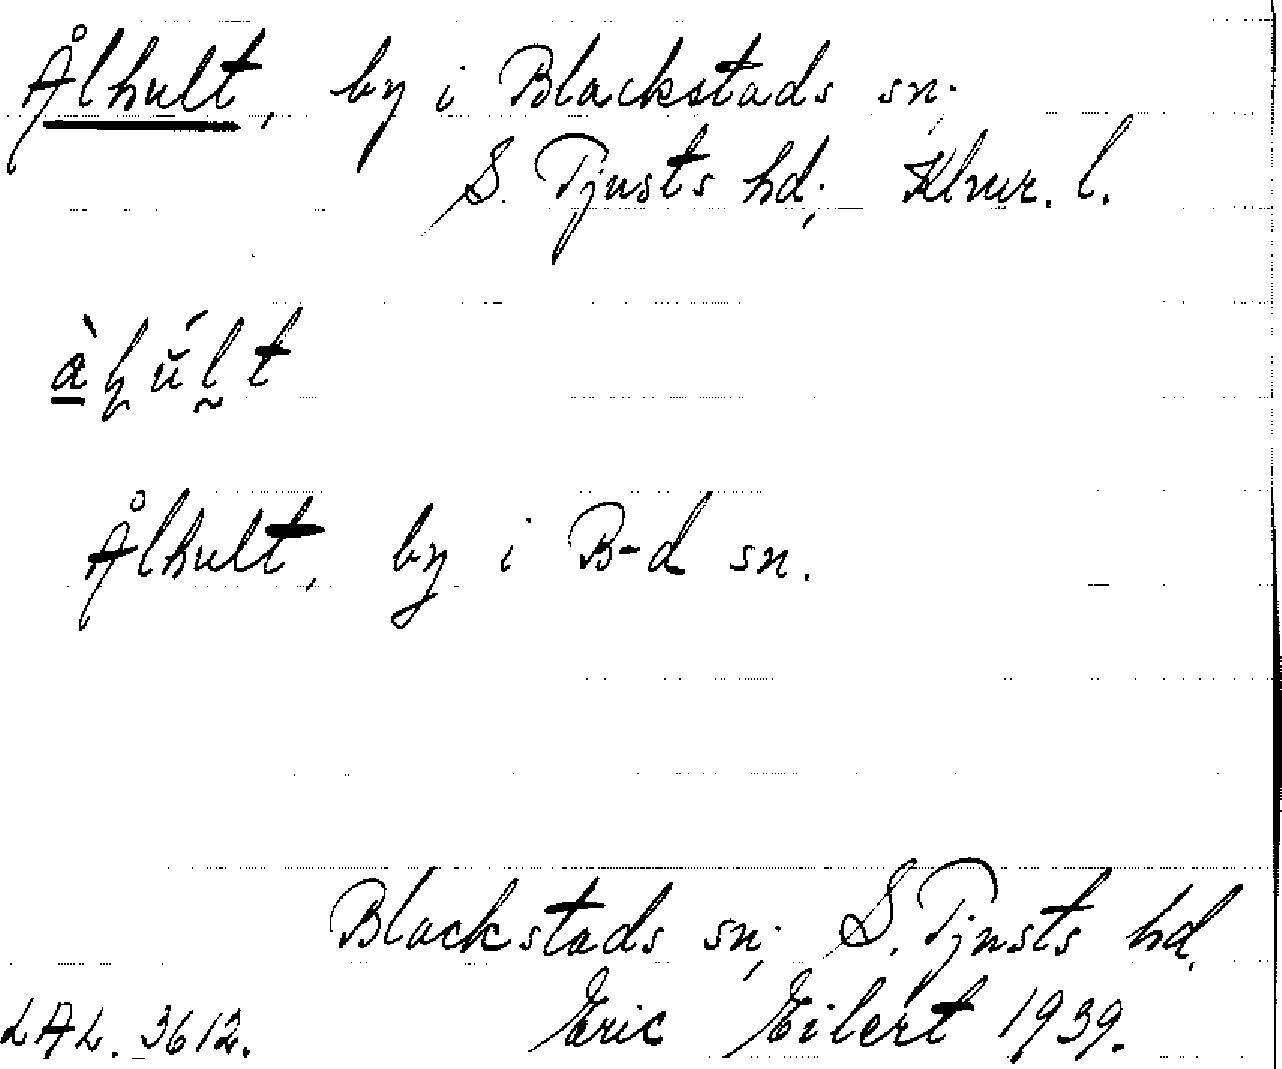 Ålhult, by i Blackstads sn.,
S. Tjusts hd., Klmr. l.
Ålhult, by i B-d sn.
Blackstads sn., S. Tjusts hd.
LAL. 3612. Eric Eilert 1939.